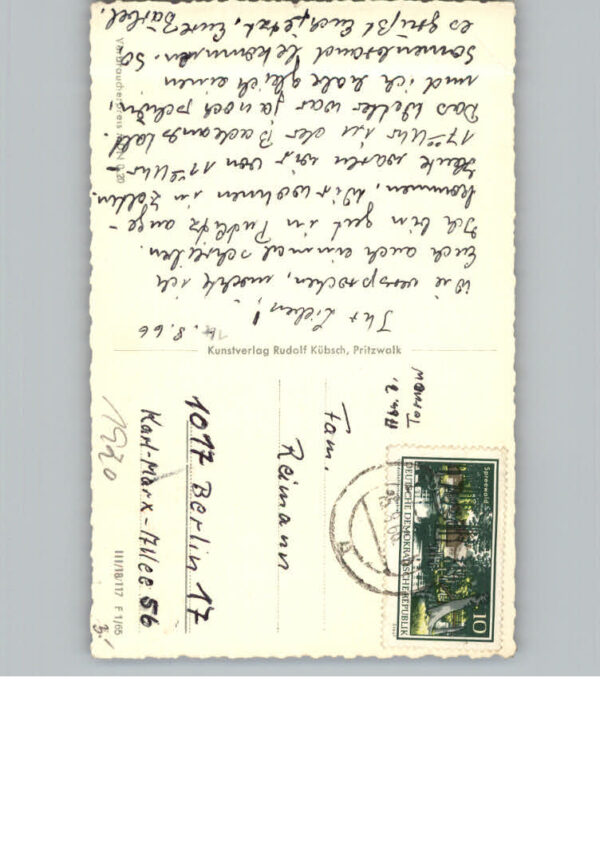 14.8.66
Ihr Lieben!
Wie versprochen, möchte ich
Euch auch einmal schreiben.
Ich bin gut in Putlitz ange-
kommen. Wir wohnen in Zelten.
Heute waren wir von 11⁰⁰ Uhr -
17⁰⁰ Uhr in der Badeanstalt.
Das Wetter war ja noch schön,
und ich habe gleich einen
Sonnenbrand bekommen. So
es grüßt Euch jetzt, Eure Bärbel.
Verbraucherpreis MDN 0,20
Kunstverlag Rudolf Kübsch, Pritzwalk
Fam.
Reimann
1017 Berlin 17
Karl-Marx-Allee 56
1920
III/18/117 F 1/65
Spreewald
DEUTSCHE DEMOKRATISCHE REPUBLIK
10